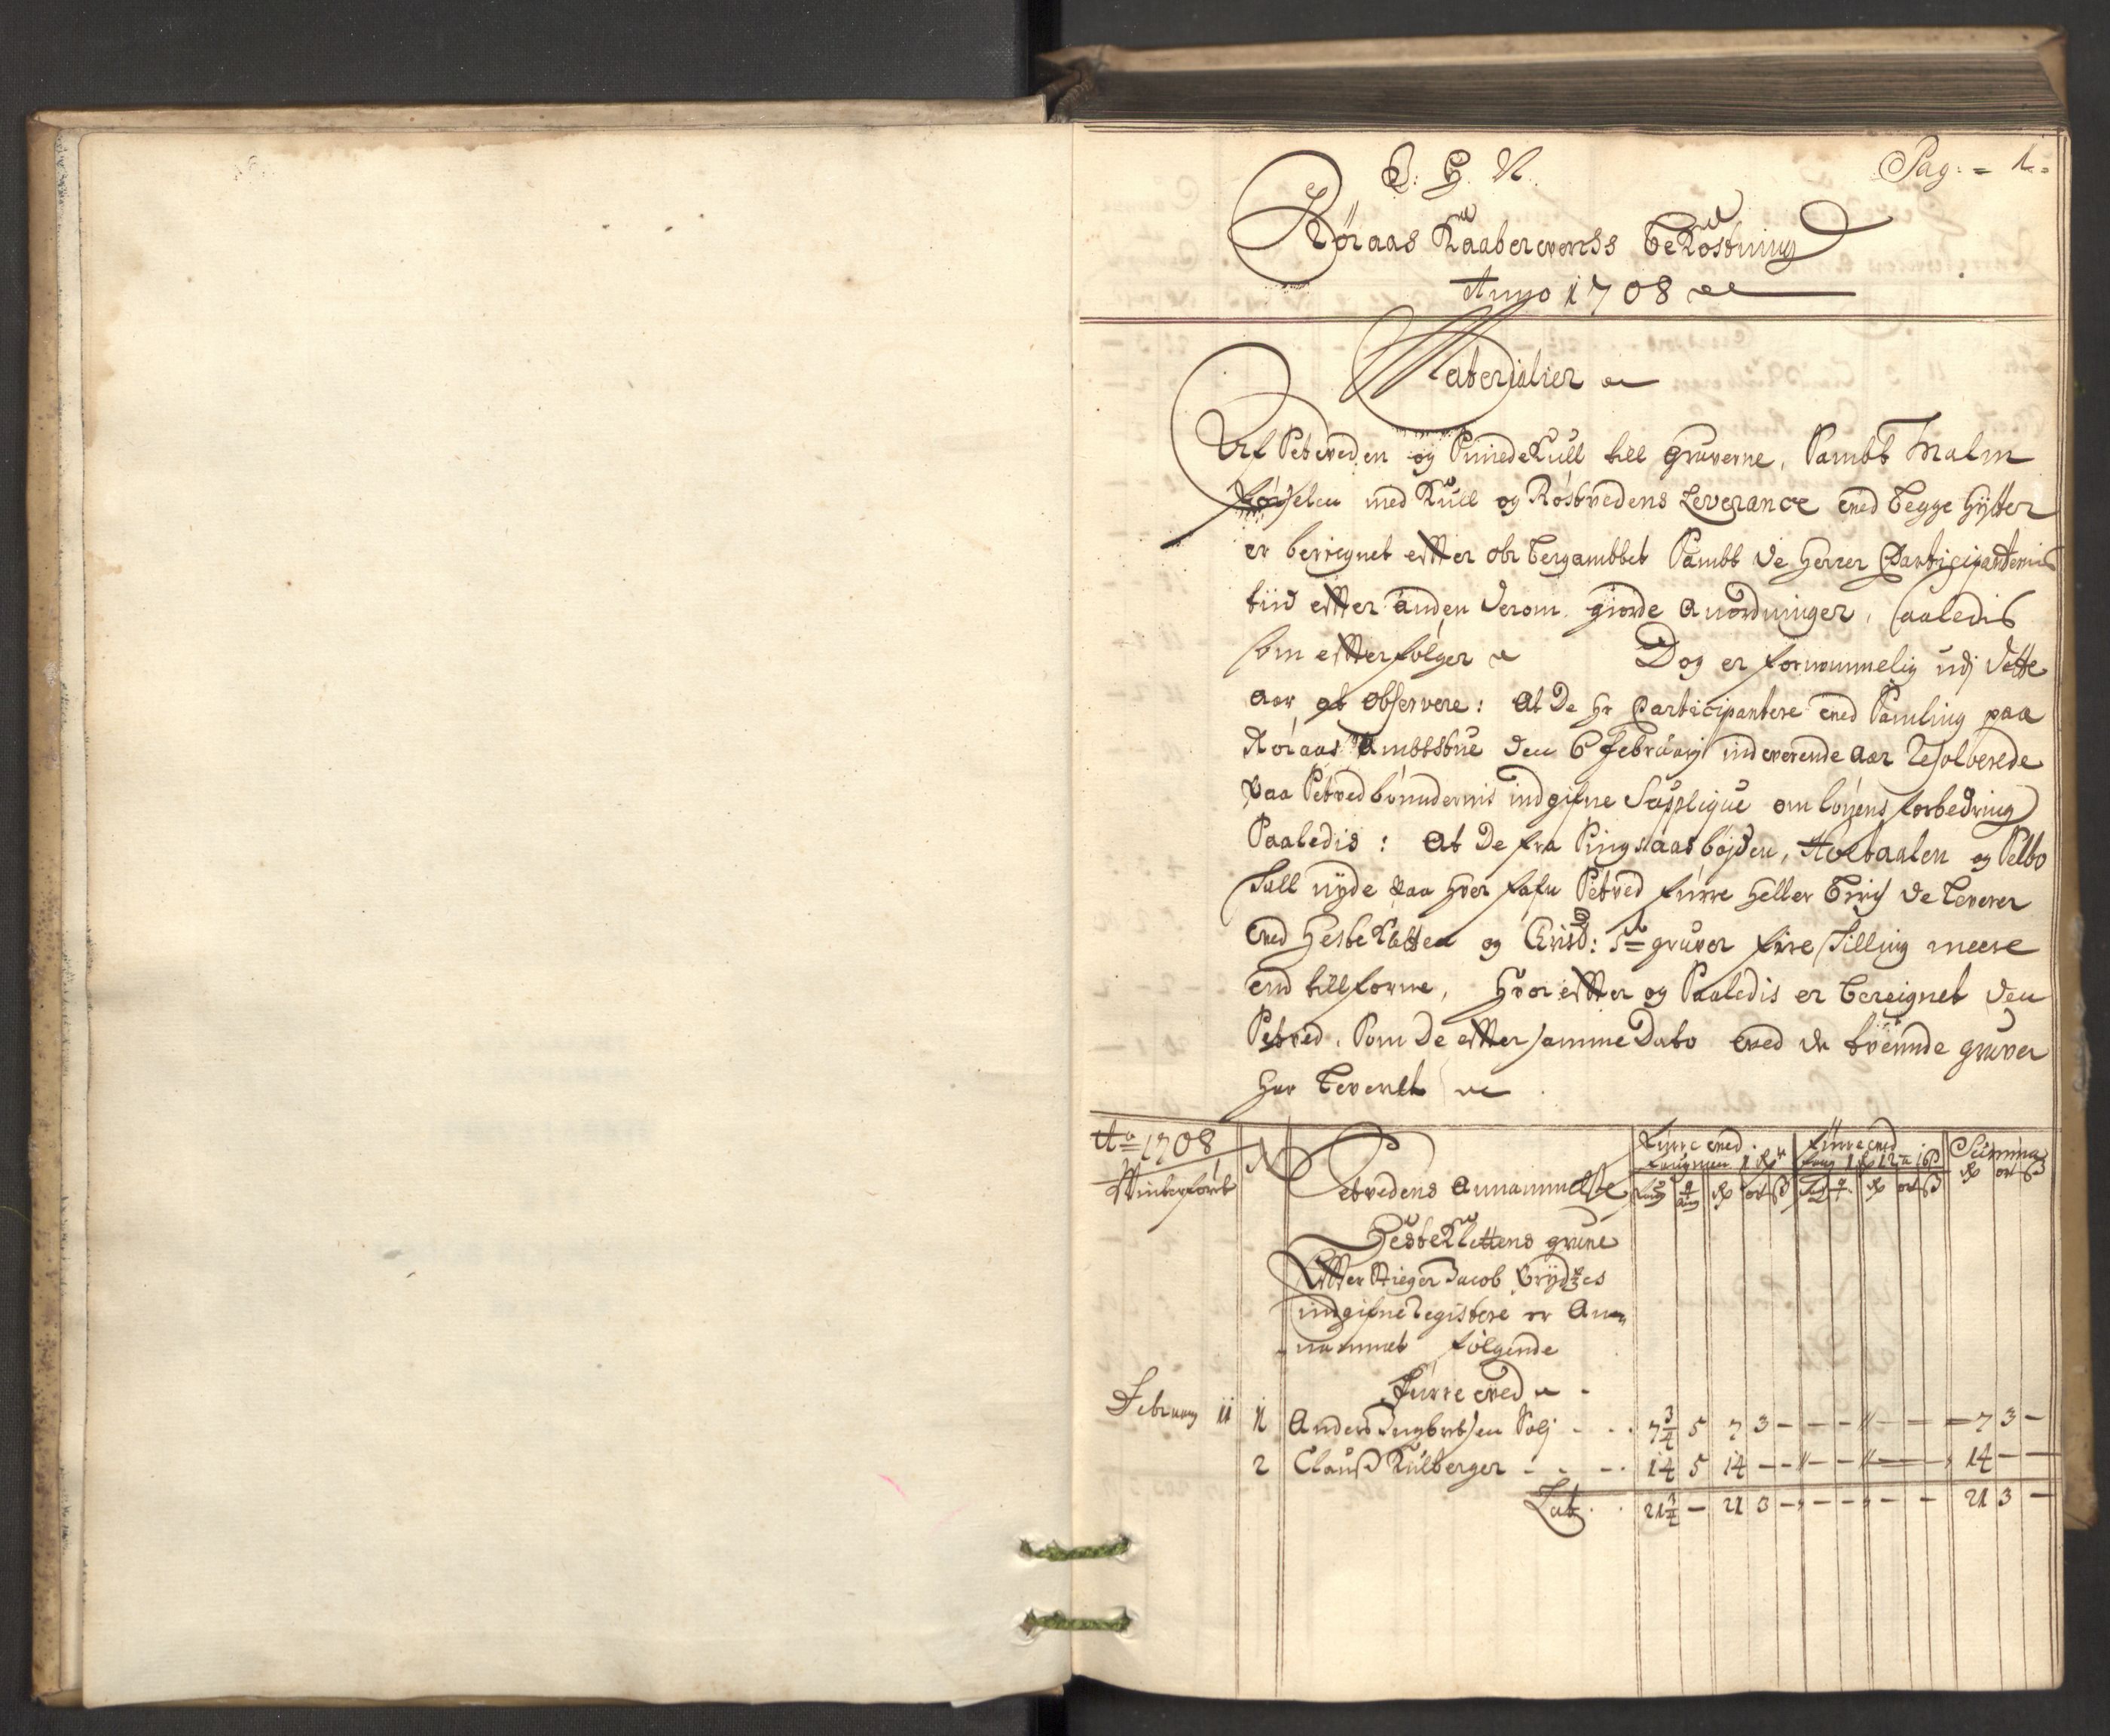 Pag: = 1.
I: H: N:
Röraas Kaaberwercks Bekostning
Anno 1708
Materialier
Af Setveden og Smedekull till gruverne, Sambt Malm
kiörselen med Kull og Röstvedens Leverance ved begge hÿtter
er beregnet efter obr bergambtet Sambt de herrer Participanternis
tiid efter anden derom giorde Anordninger, saaledis
som efterfölger Dog er fornemmelig udj dette
aar at observere: At de hr Participantere ved Samling paa
Röraas Ambtstue den 6 februarij indeverende aar Resolverede
paa Setvedböndernis indgifne Supplique om lönens forbedring
Saaledis: At de fra Singsaasböjden, Holtaalen og Selbo
skall nyde paa hver fafn Setved furre heller birch de leverer
ved hesteKletten og Christ: gruver fire skilling meere
end tillforne, hvor efter og Saaledis er bereignet den
Setved, Som de efter samme Dato ved de tvende gruver
har leverit
Ao 1708
Winterföret
N
Setvedens Annammelse
Furre ved
furre ved
Summa
HesteKlettens grune
Efter Stieger Jacob
indgifne Registere er An
nammet fölgende
Furre ved
February 11 1 Anders Ingbrtsen 7¾ 5 7 3 - - - " - - - 7 3 -
2 Clauß Kulberger 14 5 14 - - " - - " - - 14 - -
Lat 21¾ - 21 3 - - - - - - 21 3 -